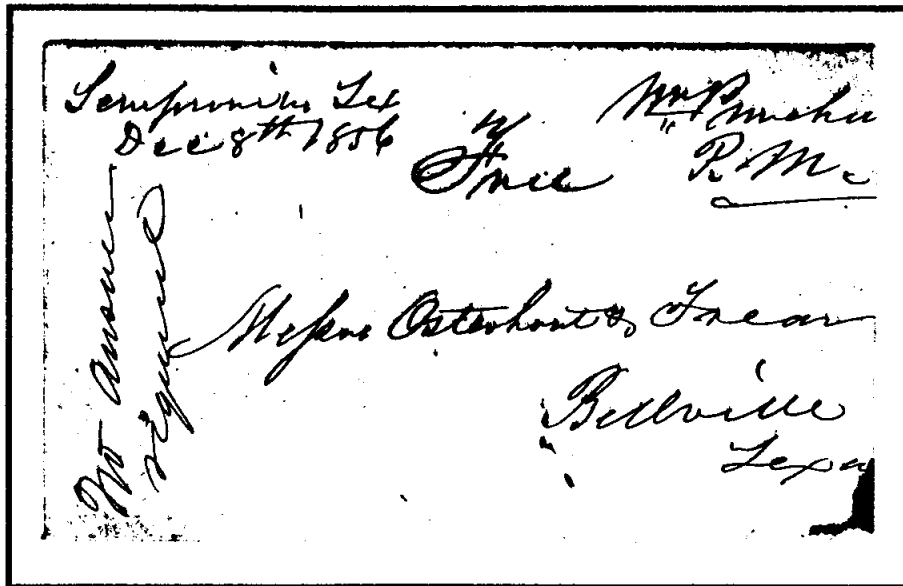 Sempronius Tex
Dec 8th 1856
Free
Wm P.
P. M.
No answer
required
Messrs Osterhout &
Bellville
Texas